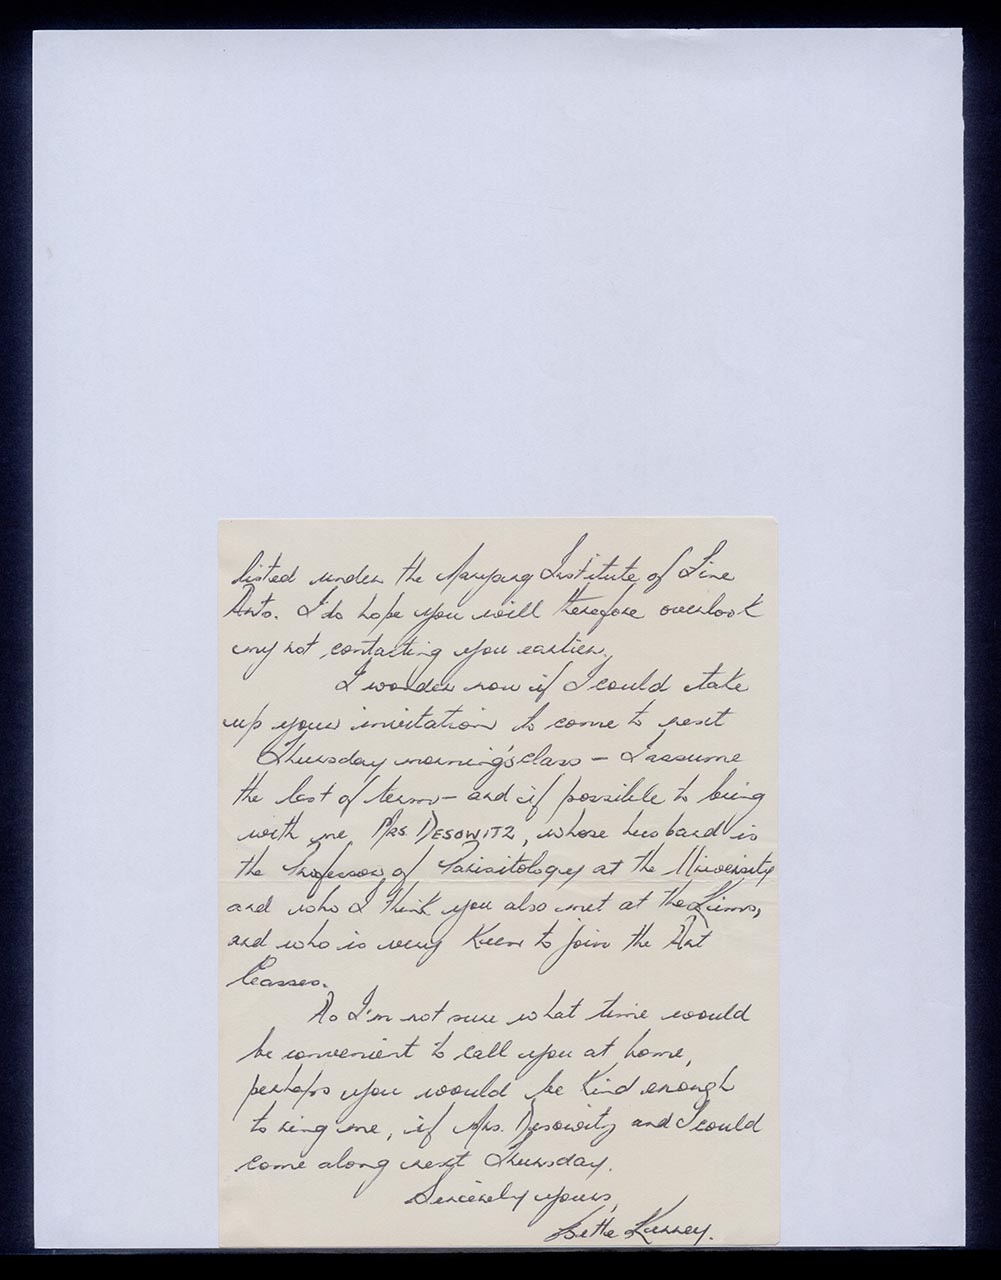 listed under the Nanyang Institute of Fine
Arts. I do hope you will therefore overlook
my not contacting you earlier.
I wonder now if I could take
up your invitation to come to next
Thursday morning's class – I assume
the last of term – and if possible to bring
with me MRS. DESOWITZ, whose husband is
the Professor of Parisitology at the University
and who I think you also met at the
and who is very keen to join the Art
Classes.
As I'm not sure what time would
be convenient to call you at home,
perhaps you would be kind enough
to ring me, if Mrs. Desowitz and I could
come along next Thursday.
Sincerely yours,
Bette